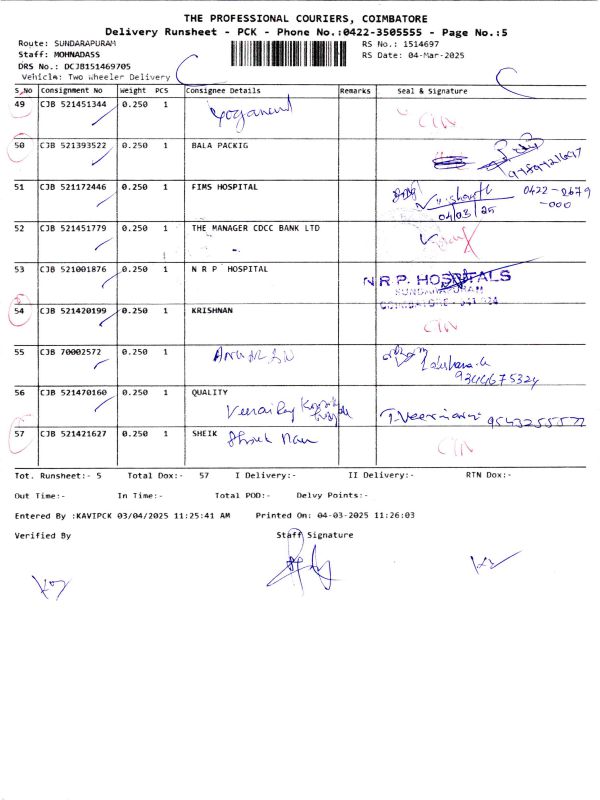 THE PROFESSIONAL COURIERS, COIMBATORE
Delivery Runsheet - PCK - Phone No.:0422-3505555 - Page No.:5
Route: SUNDARAPURAM
RS No.: 1514697
Staff: MOHNADASS
RS Date: 04-Mar-2025
DRS No.: DCJB151469705
Vehicle: Two Wheeler Delivery
S.No Consignment No Weight PCS Consignee Details Remarks Seal & Signature
49 CJB 521451344 0.250 1 Yoganand
50 CJB 521393522 0.250 1 BALA PACKIG
51 CJB 521172446 0.250 1 FIMS HOSPITAL 0422-2679
-000
04/03/25
52 CJB 521451779 0.250 1 THE MANAGER CDCC BANK LTD
53 CJB 521001876 0.250 1 N R P HOSPITAL N.R.P. HOSPITALS
SUNDARAPURAM
COIMBATORE - 641 024
54 CJB 521420199 0.250 1 KRISHNAN
55 CJB 70002572 0.250 1
9344675324
56 CJB 521470160 0.250 1 QUALITY
9543255577
57 CJB 521421627 0.250 1 SHEIK
Tot. Runsheet:- 5 Total Dox:- 57 I Delivery:- II Delivery:- RTN Dox:-
Out Time:- In Time:- Total POD:- Delvy Points:-
Entered By :KAVIPCK 03/04/2025 11:25:41 AM Printed On: 04-03-2025 11:26:03
Verified By Staff Signature